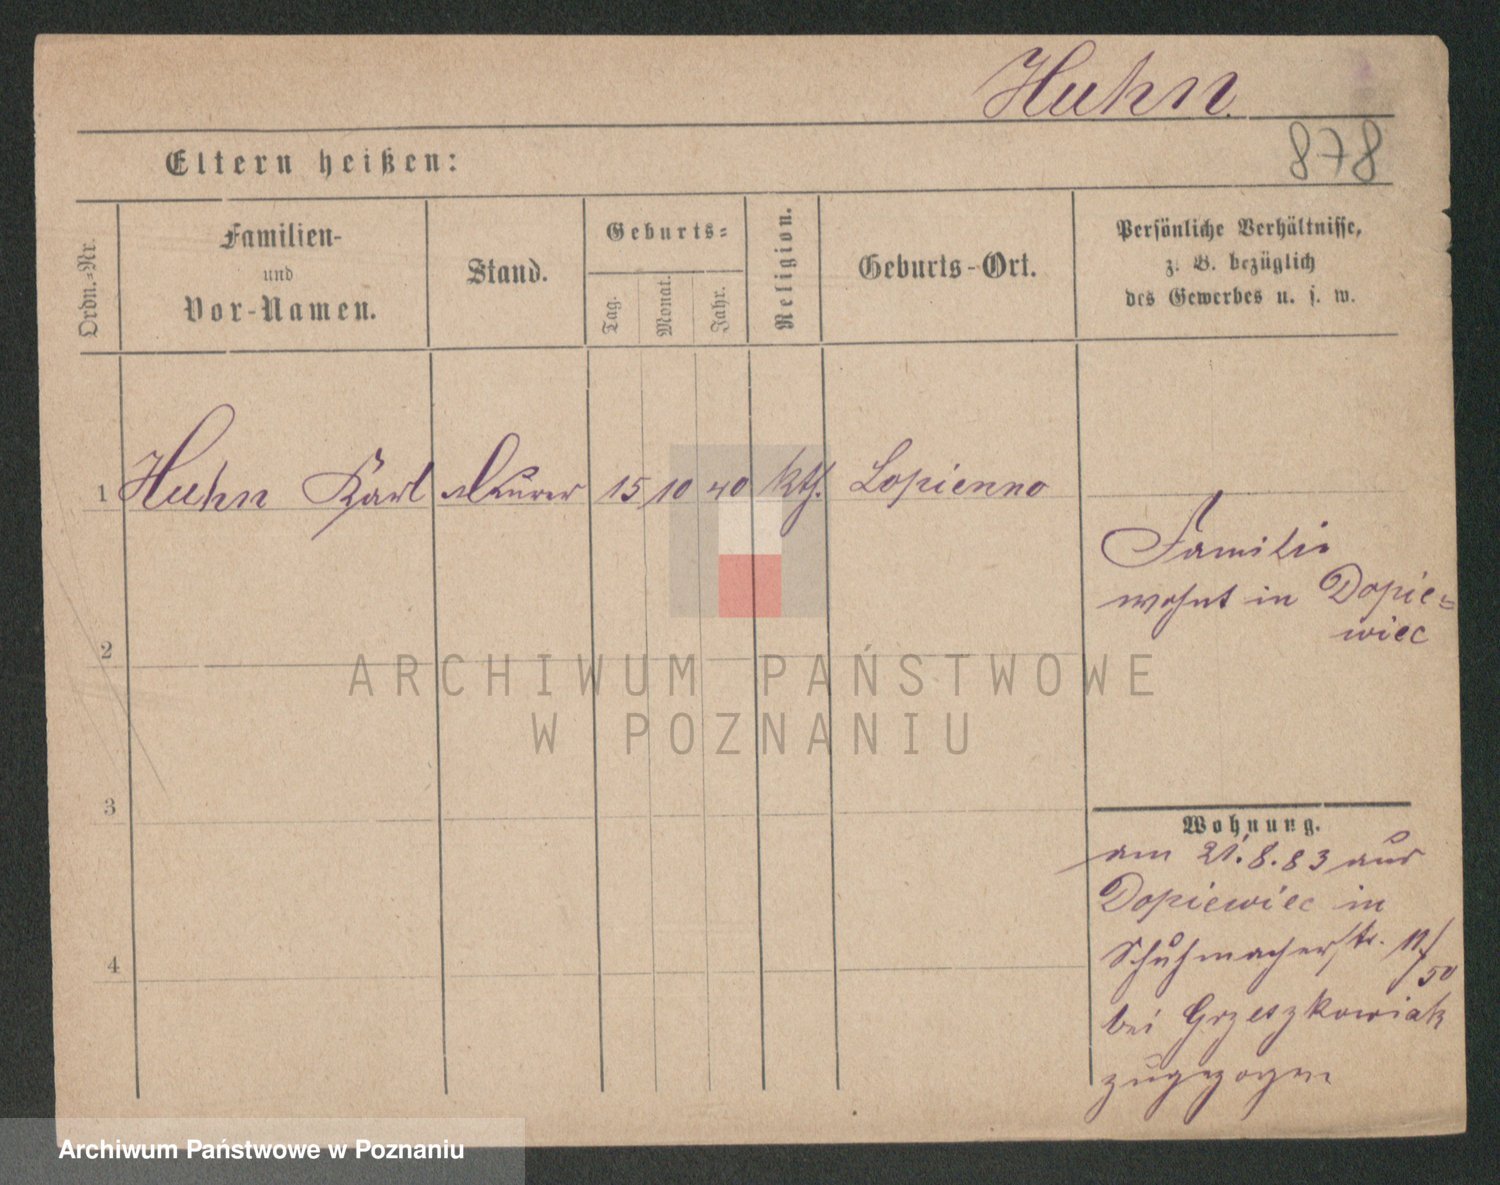 Huhn.
878
Eltern heißen:
Ordn.-Nr.
Familien-
und
Vor-Namen.
Stand.
Geburts-
Tag.
Monat.
Jahr.
Religion.
Geburts-Ort.
Persönliche Verhältnisse,
z. B. bezüglich
des Gewerbes u. s. w.
1 Huhn Karl Maurer 15 10 40 kth. Lopienno
Familie
wohnt in Dopie=
wiec
2
ARCHIWUM PAŃSTWOWE
W POZNANIU
3
Wohnung.
am 21.8.83 aus
Dopiewiec in
Schuhmacherstr. 11/
50
bei Grzeszkowiak
zugezogen
4
Archiwum Państwowe w Poznaniu